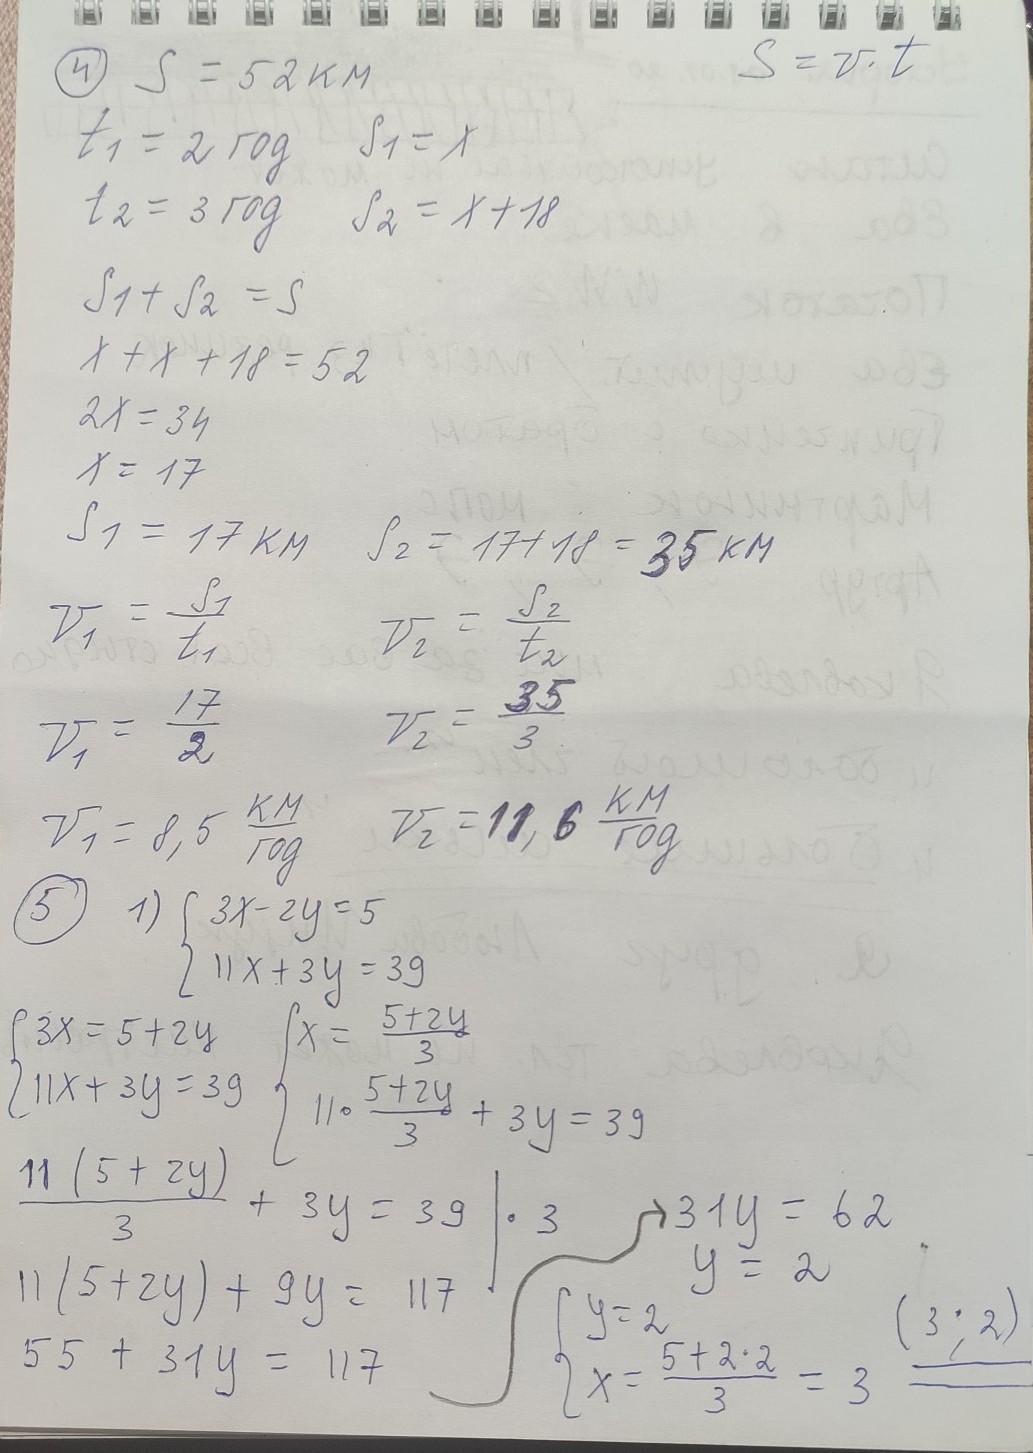 ④ S = 52 км S = v · t
t1 = 2 год S1 = x
t2 = 3 год S2 = x + 18
S1 + S2 = S
x + x + 18 = 52
2x = 34
x = 17
S1 = 17 км S2 = 17 + 18 = 35 км
v1 = S1/t1 v2 = S2/t2
v1 = 17/2 v2 = 35/3
v1 = 8,5 км/год v2 = 11,6 км/год
⑤ 1) { 3x - 2y = 5
11x + 3y = 39
{ 3x = 5 + 2y { x = (5 + 2y)/3
11x + 3y = 39 11 · (5 + 2y)/3 + 3y = 39
11(5 + 2y)/3 + 3y = 39 | · 3
11(5 + 2y) + 9y = 117
55 + 31y = 117
→ 31y = 62
y = 2
{ y = 2
x = (5 + 2 · 2)/3 = 3 (3 ; 2)